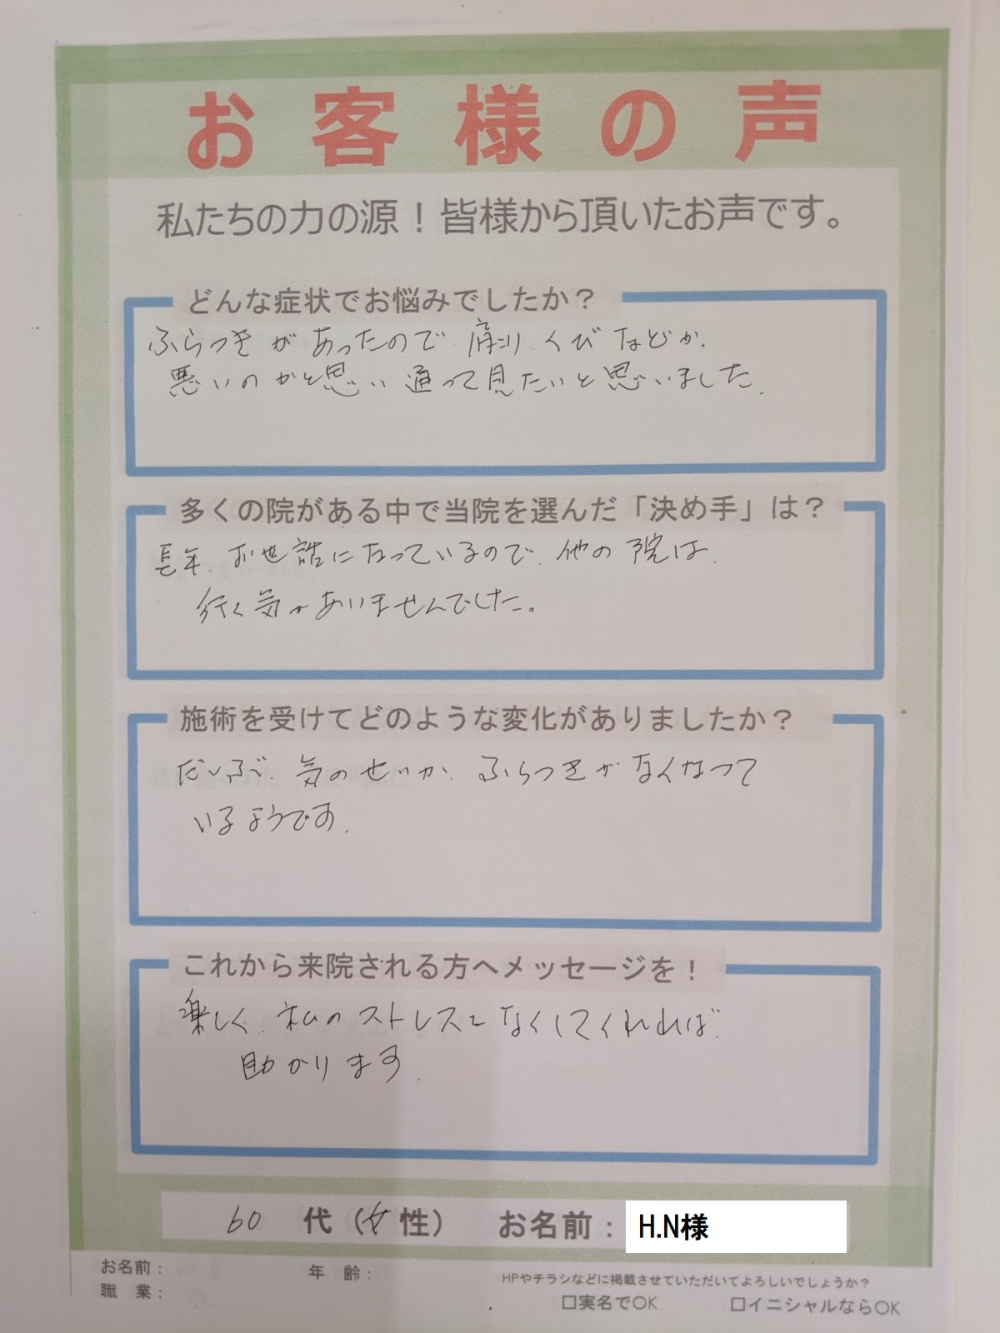 お客様の声
私たちの力の源！皆様から頂いたお声です。
どんな症状でお悩みでしたか？
ふらつきがあったので 肩こり くびなどが
悪いのかと思い通って見たいと思いました.
多くの院がある中で当院を選んだ「決め手」は？
長年 お世話になっているので 他の院は
行く気がありませんでした。
施術を受けてどのような変化がありましたか？
だいぶ 気のせいか ふらつきがなくなって
いるようです.
これから来院される方へメッセージを！
楽しく 私のストレスをなくしてくれれば
助かります.
60 代（女性） お名前：H.N様
お名前： 年 齢：
職 業：
HPやチラシなどに掲載させていただいてよろしいでしょうか？
□実名でOK □イニシャルならOK